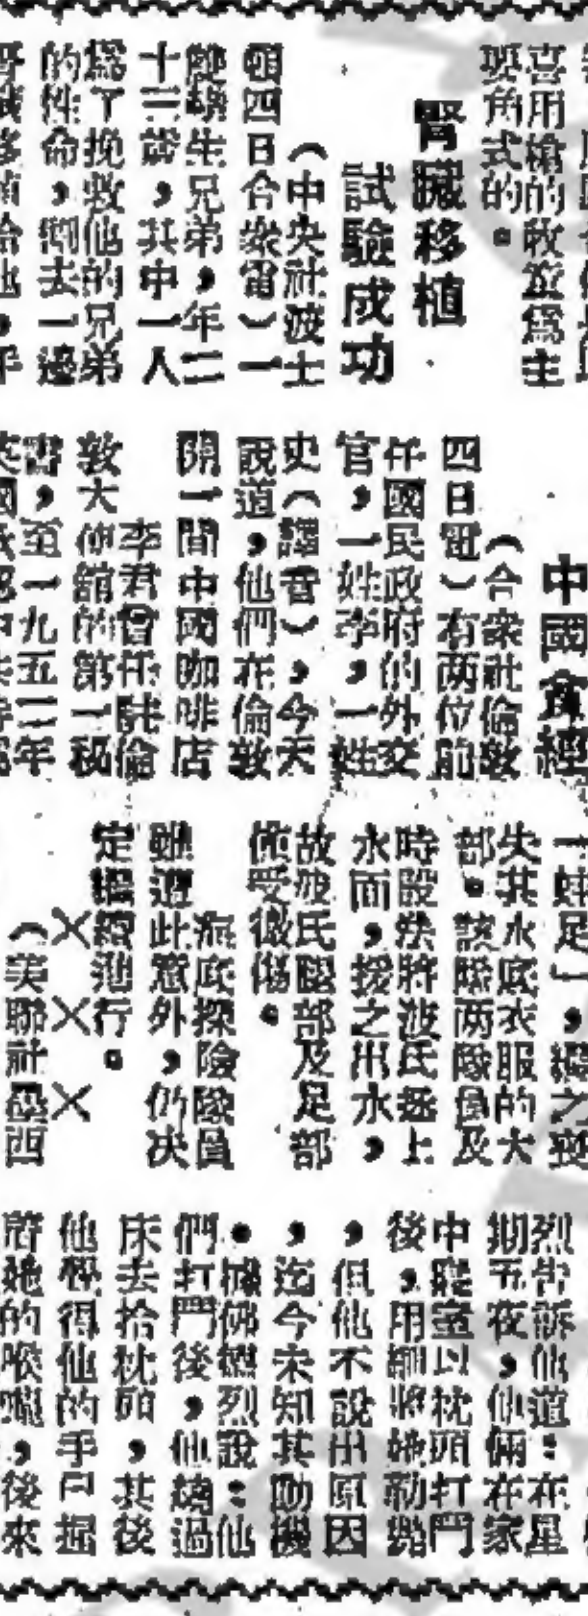 喜用槍的敢並爲主
要角式的。
腎臟移植
試驗成功
(中央社波士
頓四日合衆電)一
雙孿生兄弟,年二
十三歲,其中一人
爲了挽救他的兄弟
的性命,割去一邊
中國食經
(合衆社倫敦
四日電)有两位前
任國民政府的外交
官,一姓李,一姓
史(譯音),今天
說道,他們在倫敦
開一間中國咖啡店
李君曾任駐倫
敦大使館的第一秘
書,至一九五二年
失其水底衣服的大
部。該隊两隊員及
時設法將波氏拯上
水面,援之出水,
故波氏腿部及足部
僅受微傷。
海底探險隊員
雖遭此意外,仍决
定繼續進行。
×××
(美聯社墨西
烈告訴他道:在星
期五夜,他倆在家
中聽室以枕頭打鬥
後,用綑將她勒斃
,但他不說出原因
,迄今未知其動機
。據佛烈說:他
們打鬥後,他繞過
床去拾枕頭,其後
他覺得他的手已握
着她的喉嚨,後來